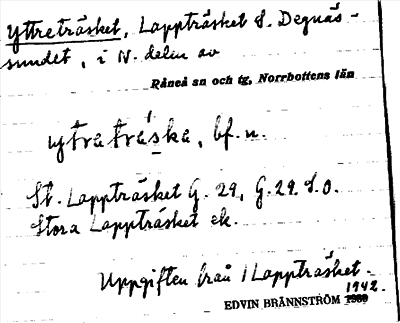 Yttreträsket, Lappträsket S. Degnäs-
sundet, i N. delen av
Råneå sn och tg, Norrbottens län
ytratráska, bf. n.
St. Lappträsket G. 29, G. 29. S.O.
Stora Lappträsket ek.
Uppgiften från 1 Lappträsket.
1942.
EDVIN BRÄNNSTRÖM